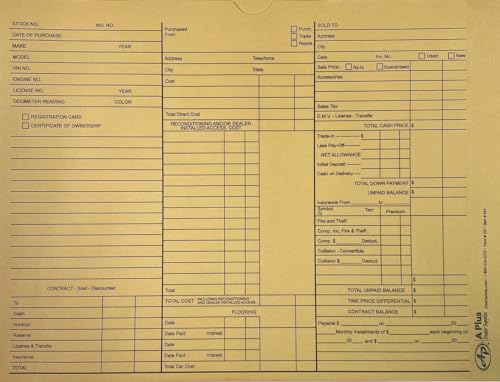 STOCK NO. INV. NO.
DATE OF PURCHASE
MAKE YEAR
MODEL
VIN NO.
ENGINE NO.
LICENSE NO. YEAR
ODOMETER READING COLOR
REGISTRATION CARD
CERTIFICATE OF OWNERSHIP
CONTRACT - Sold - Discounted
To
Cash
Holdout
Reserve
License & Transfer
Insurance
TOTAL
Purchased From
Purch
Trade
Repos
Address Telephone
City State
Cost
Total Direct Cost
RECONDITIONING AND/OR DEALER
INSTALLED ACCESS. COST
Total
TOTAL COST INCLUDING RECONDITIONING
AND DEALER INSTALLED ACCESS.
FLOORING
Date
Date Paid Interest
Date
Date Paid Interest
Total Car Cost
SOLD TO
Address
City
Date Inv. No. Used New
Sale Price - As-Is Guaranteed
Accessories
Sales Tax
D.M.V. - License - Transfer
TOTAL CASH PRICE $
Trade-In $
Less Pay-Off
NET ALLOWANCE
Initial Deposit
Cash on Delivery
TOTAL DOWN PAYMENT $
UNPAID BALANCE
Insurance From to
Symbol To Ter. Premium
Fire and Theft
Comp. Inc. Fire & Theft
Comp. $ Deduct.
Collision - Convertible
Collision $ Deduct.
$
TOTAL UNPAID BALANCE $
TIME PRICE DIFFERENTIAL $
CONTRACT BALANCE $
Payable $ on 20
Monthly Installments of $ each beginning on
20 and $ on 20
AP
A Plus
Dealer Supplies